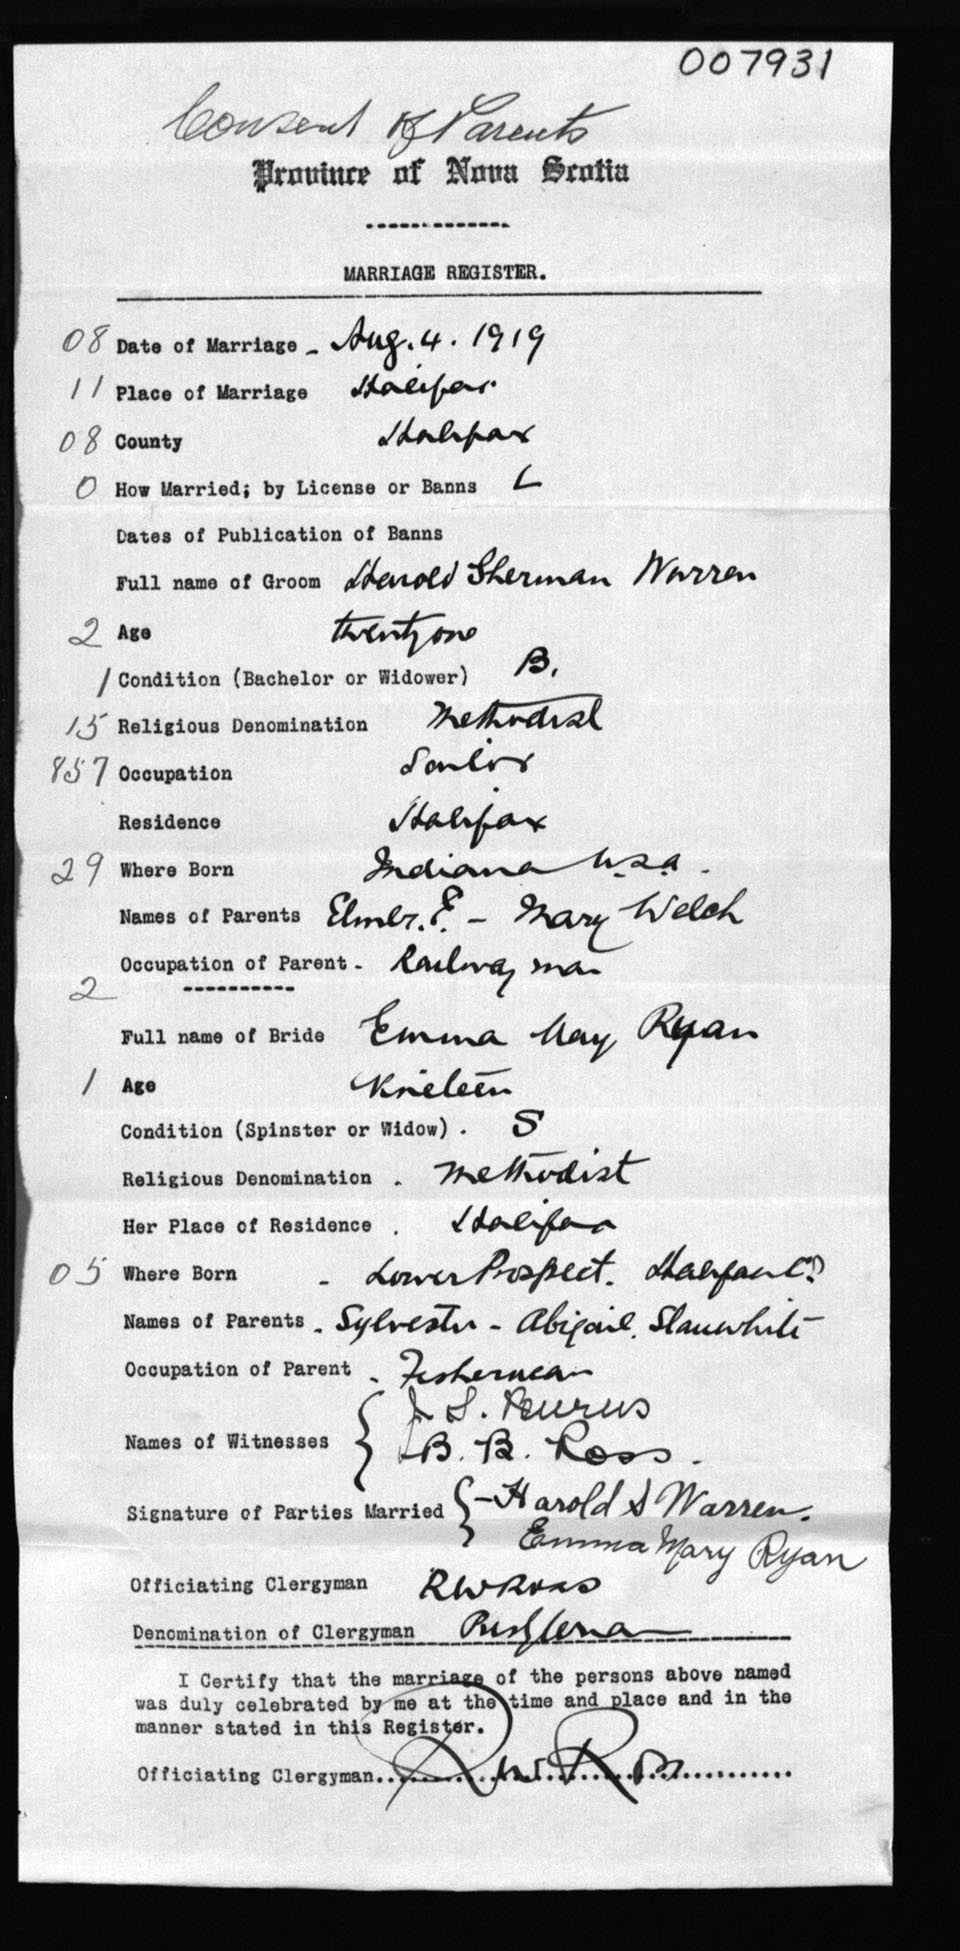 007931
Consent of Parents
Province of Nova Scotia
MARRIAGE REGISTER.
08 Date of Marriage - Aug. 4. 1919
11 Place of Marriage Halifax
08 County Halifax
0 How Married; by License or Banns L
Dates of Publication of Banns
Full name of Groom Harold Sherman Warren
2 Age twenty one
1 Condition (Bachelor or Widower) B.
15 Religious Denomination Methodist
857 Occupation Sailor
Residence Halifax
29 Where Born Indiana U.S.A.
Names of Parents Elmer. E. - Mary Welch
Occupation of Parent - Railway man
2
Full name of Bride Emma May Ryan
1 Age Nineteen
Condition (Spinster or Widow) . S
Religious Denomination . Methodist
Her Place of Residence . Halifax
05 Where Born - Lower Prospect. Halifax Co
Names of Parents - Sylvester - Abigail. Slauwhite
Occupation of Parent - Fisherman
S.
Names of Witnesses B. B. Ross.
Signature of Parties Married - Harold S Warren.
Emma Mary Ryan
Officiating Clergyman RW Ross
Denomination of Clergyman
I Certify that the marriage of the persons above named
was duly celebrated by me at the time and place and in the
manner stated in this Register.
Officiating Clergyman R W Ross